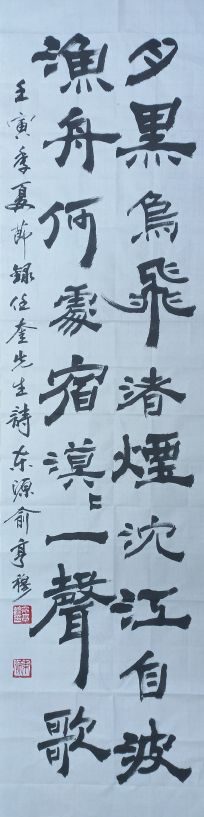 夕黑烏飛渚煙沈江自波
漁舟何處宿漠〻一聲歌
壬寅季夏節錄任奎先生詩东源俞亨穆